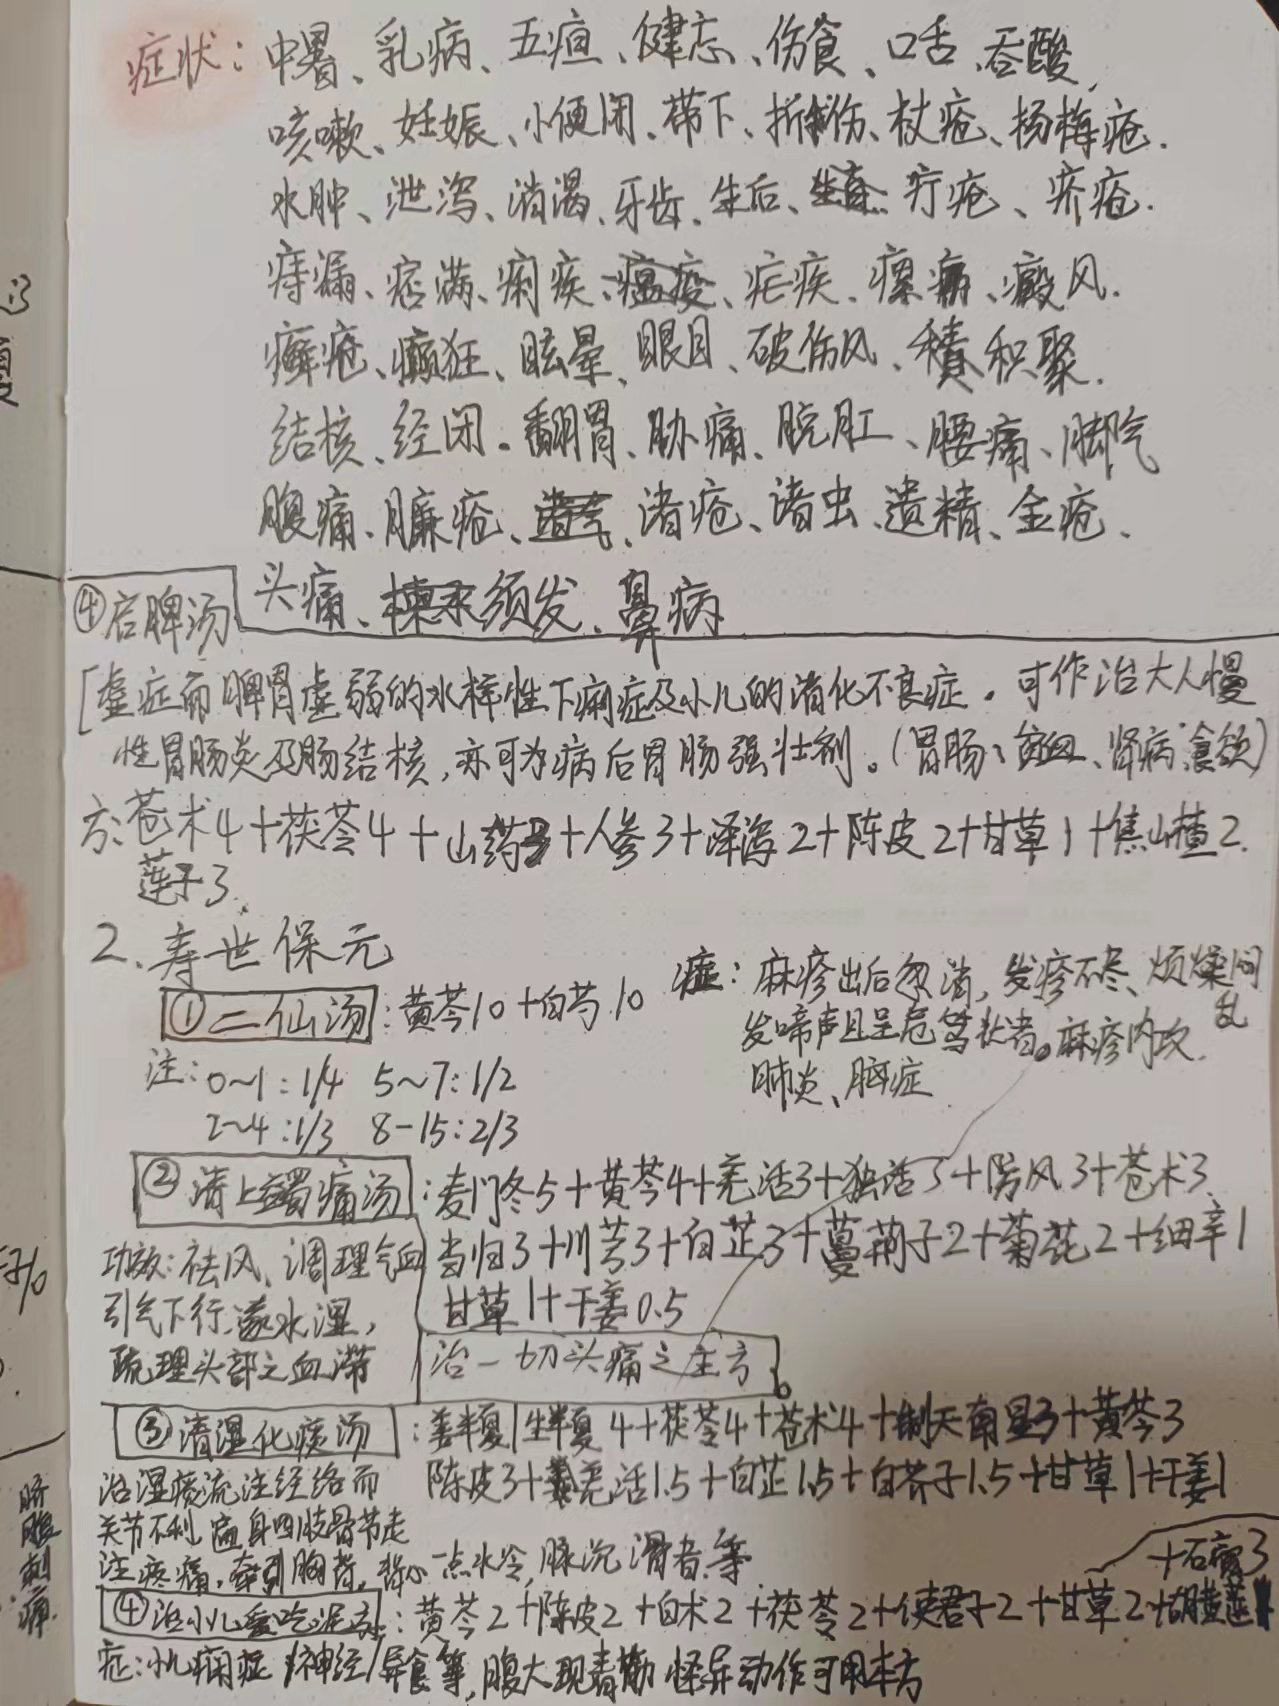 症状：中暑、乳病、五疸、健忘、伤食、口舌、吞酸、
咳嗽、妊娠、小便闭、带下、折伤、杖疮、杨梅疮.
水肿、泄泻、消渴、牙齿、生后、疔疮、疥疮.
痔漏、痞满、痢疾、瘟疫、疟疾、瘰疬、癜风.
癣疮、癫狂、眩晕、眼目、破伤风、积聚.
结核、经闭、翻胃、胁痛、脱肛、腰痛、脚气
腹痛、臁疮、诸气、诸疮、诸虫、遗精、金疮、
头痛、须发、鼻病
④启脾汤
[虚症而脾胃虚弱的水样性下痢症及小儿的消化不良症。可作治大人慢
性胃肠炎及肠结核，亦可为病后胃肠强壮剂。(胃肠、贫血、肾病、食欲)
方：苍术4+茯苓4+山药3+人参3+泽泻2+陈皮2+甘草1+焦山楂2.
莲子3.
2、寿世保元
①二仙汤：黄芩10+白芍10
症：麻疹出后忽消，发疹不尽、烦燥闷乱
发啼声且呈危笃状者。麻疹内攻.
肺炎、脑症
注：0~1：1/4 5~7：1/2
2~4：1/3 8-15：2/3
②清上蠲痛汤：麦门冬5+黄芩4+羌活3+独活3+防风3+苍术3
当归3+川芎3+白芷3+蔓荆子2+菊花2+细辛1
甘草1+干姜0.5
功效：祛风、调理气血
引气下行、逐水湿，
疏理头部之血滞
治一切头痛之主方。
③清湿化痰汤：姜半夏|生半夏4+茯苓4+苍术4+制天南星3+黄芩3
陈皮3+羌活1.5+白芷1.5+白芥子1.5+甘草1+干姜1
治湿痰流注经络而
关节不利，遍身四肢骨节走
注疼痛，牵引胸背，背心一点冰冷，脉沉滑者等
+石膏3
④治小儿爱吃泥方：黄芩2+陈皮2+白术2+茯苓2+使君子2+甘草2+胡黄莲1
症：小儿痫症/神经/异食等，腹大现青筋怪异动作可用本方
脐腹刺痛.